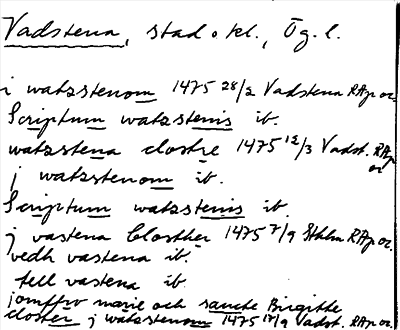 Vadstena, stad o kl., Ög. l.
i watzstenom 1475 28/2 Vadstena RAp or.
Scriptum watzstenis ib.
watzstena clostre 1475 12/3 Vadst. RAp or
j watzstenom ib.
Scriptum watzstenis ib.
j vastena Closther 1475 7/9 Sthlm RAp or.
vedh vastena ib.
tell vastena ib
jomffrv marie och sancte Birgitte
closter j watzstenom 1475 17/9 Vadst. RAp or.